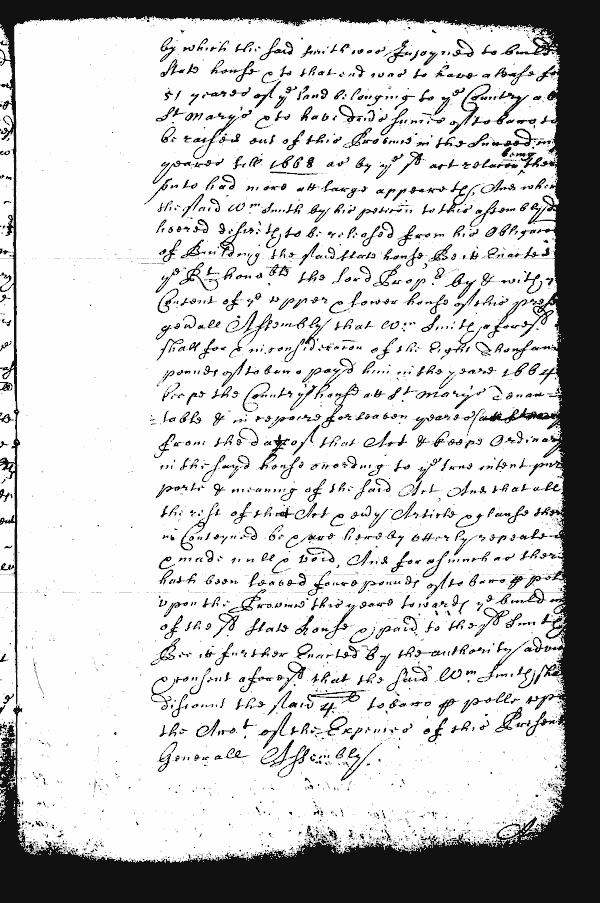 by which the said Smith was Injoyned to build
State house & to that end was to have a lease fo
51 yeares of ye land belonging to ye Country a
St Marys & to have
be raised out of this Province in the
yeares till 1668 as by ye sd act relacon being ther
unto had more att large appeareth, And wher
the said Wm Smith by his peticon to this assembly
desireth to be released from his Obligacon
of Building the said State house Be it Enacted
ye Rt honoble the Lord Propr by & with
Consent of ye upper & lower house of this pres
gen'all Assembly that Wm Smith aforesd
shall for & in consideracon of the Eight Thousand
pounds of tobacco payd him in the yeare 1664
keepe the Country house att St Marys Tenan=
table & in repaire for leaven yeares
from the date of that Act & keepe Ordinary
in the sayd house according to ye true intent pur
porte & meaning of the said Act And that all
the rest of that Act & ev'y Article & clause ther
in Conteyned be & are hereby utterly repeale
& made null & void, And forasmuch as there
hath been leavied foure pounds of tobacco p pol
upon the Province this yeare towards ye build
of the sd State house & paid to the sd Smith
Bee it further Enacted by the authority advi
& consent aforesd that the said Wm Smith sha
discount the said 4 lb tobacco p polle up
the Acot of the Expences of this Present
Generall Assembly.